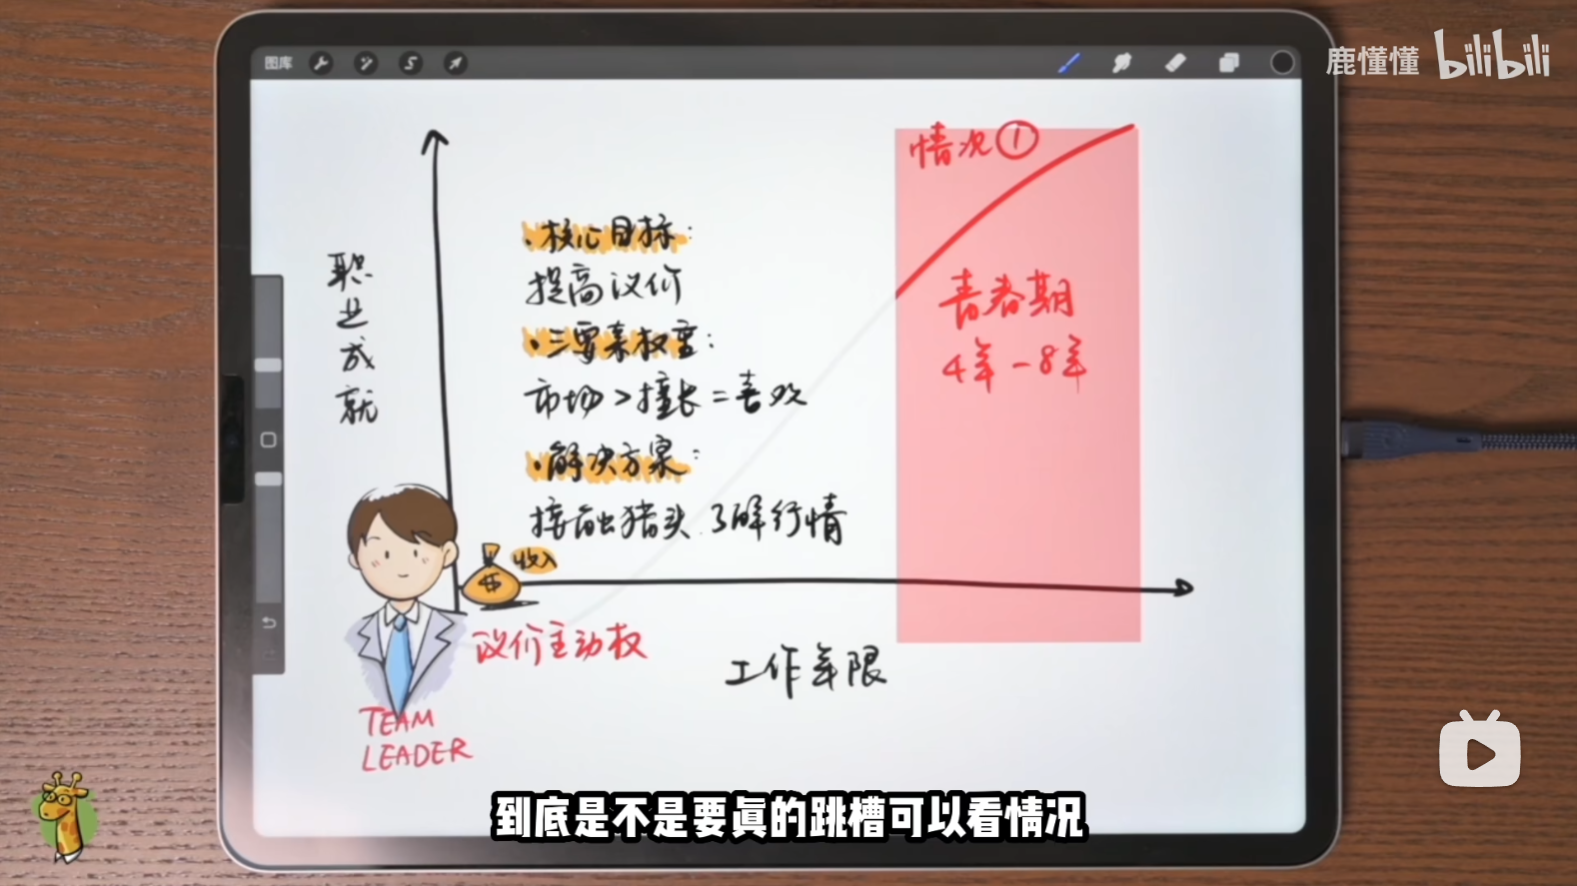 图库
鹿懂懂 bilibili
情况①
职业成就
·核心目标:
提高议价
·三要素权重:
市场>擅长=喜欢
·解决方案:
接触猎头.了解行情
青春期
4年-8年
$
收入
议价主动权
工作年限
TEAM
LEADER
到底是不是要真的跳槽可以看情况